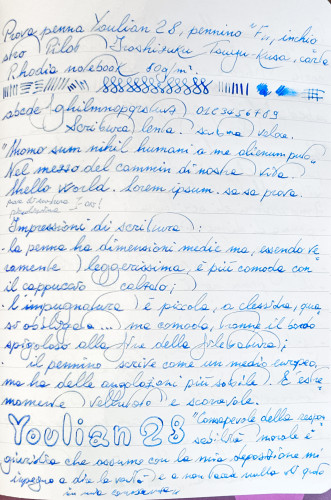 Prova penna Youlian 28, pennino "F", inchio
stro Pilot Iroshizuku Tsuyu-Kusa, carta
Rhodia notebook 80g/m².
abcdefghilmnopqrstuvz 0123456789
Scrittura lenta. scrittura veloce.
"Homo sum nihil humani a me alienum puto.
Nel mezzo del cammin di nostra vita.
Hello world. Lorem ipsum. sa sa prova.
Impressioni di scrittura:
· la penna ha dimensioni medie ma, essendo ve
ramente leggerissima, è più comoda con
il cappuccio calzato;
· l'impugnatura è piccola, a clessidra, qua
si obbligata... ma comoda, tranne il bordo
spigoloso alla fine della filettatura;
· il pennino scrive come un medio europeo,
ma ha delle angolazioni più sottili. È estre
mamente vellutato e scorrevole.
Youlian 28 "Consapevole della respon
sabilità morale e
giuridica che assumo con la mia deposizione mi
impegno a dire la verità e a non